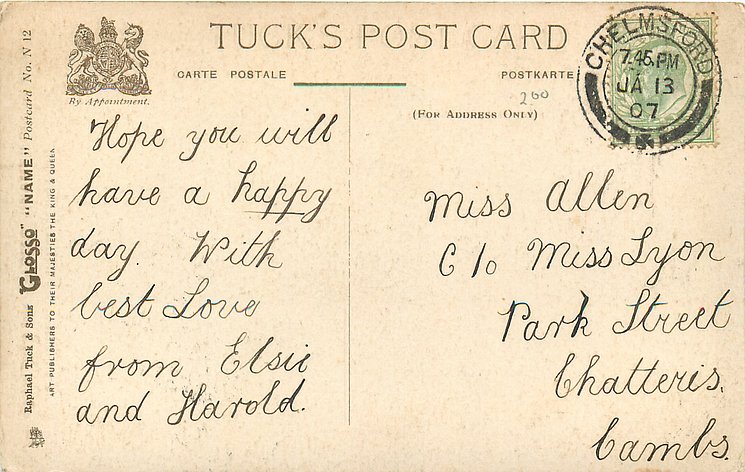 TUCK'S POST CARD
CARTE POSTALE
POSTKARTE
(For Address Only)
200
By Appointment.
CHELMSFORD
7.45.PM
JA 13
07
Raphael Tuck & Sons "GLOSSO" "NAME" Postcard No. N 12
ART PUBLISHERS TO THEIR MAJESTIES THE KING & QUEEN
Hope you will
have a happy
day. With
best Love
from Elsie
and Harold.
Miss Allen
C/o Miss Lyon
Park Street
Chatteris.
Cambs.